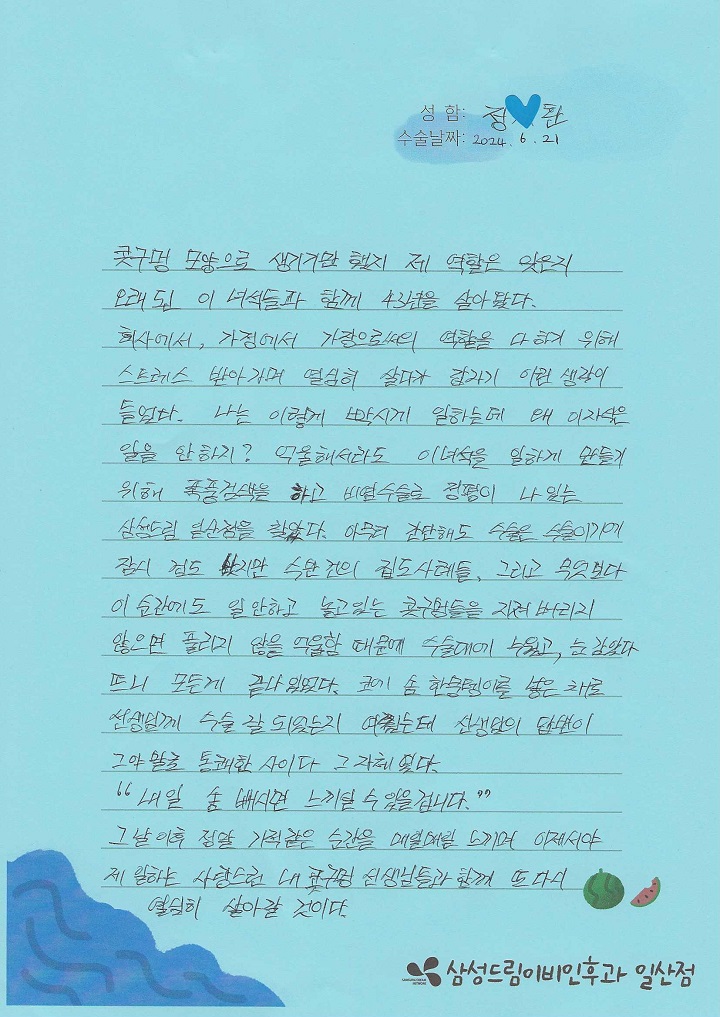 성 함: 정 환
수술날짜: 2024. 6. 21
콧구멍 모양으로 생기기만 했지 제 역할은 잊은지
오래 된 이 녀석들과 함께 43년을 살아 왔다.
회사에서, 가정에서 가장으로써의 역할을 다 하기 위해
스트레스 받아가며 열심히 살다가 갑자기 이런 생각이
들었다. 나는 이렇게 빡시게 일하는데 왜 이자식은
일을 안 하지? 억울해서라도 이녀석을 일하게 만들기
위해 폭풍검색을 하고 비염수술로 정평이 나 있는
삼성드림 일산점을 찾았다. 아무리 간단해도 수술은 수술이기에
잠시 겁도 났지만 수만 건의 집도 사례들, 그리고 무엇보다
이 순간에도 일 안하고 놀고있는 콧구멍들을 지져 버리지
않으면 풀리지 않을 억울함 때문에 수술대에 누웠고, 눈 감았다
뜨니 모든게 끝나 있었다. 코에 솜 한뭉텅이를 넣은 채로
선생님께 수술 잘 되었는지 여쭸는데 선생님의 답변이
그야 말로 통쾌한 사이다 그 자체 였다.
“내일 솜 빼시면 느끼실 수 있을겁니다.”
그날 이후 정말 기적같은 순간을 매일매일 느끼며 이제서야
제 일하는 사랑스런 내 콧구멍 선생님들과 함께 또 다시
열심히 살아갈 것이다.
삼성드림이비인후과 일산점